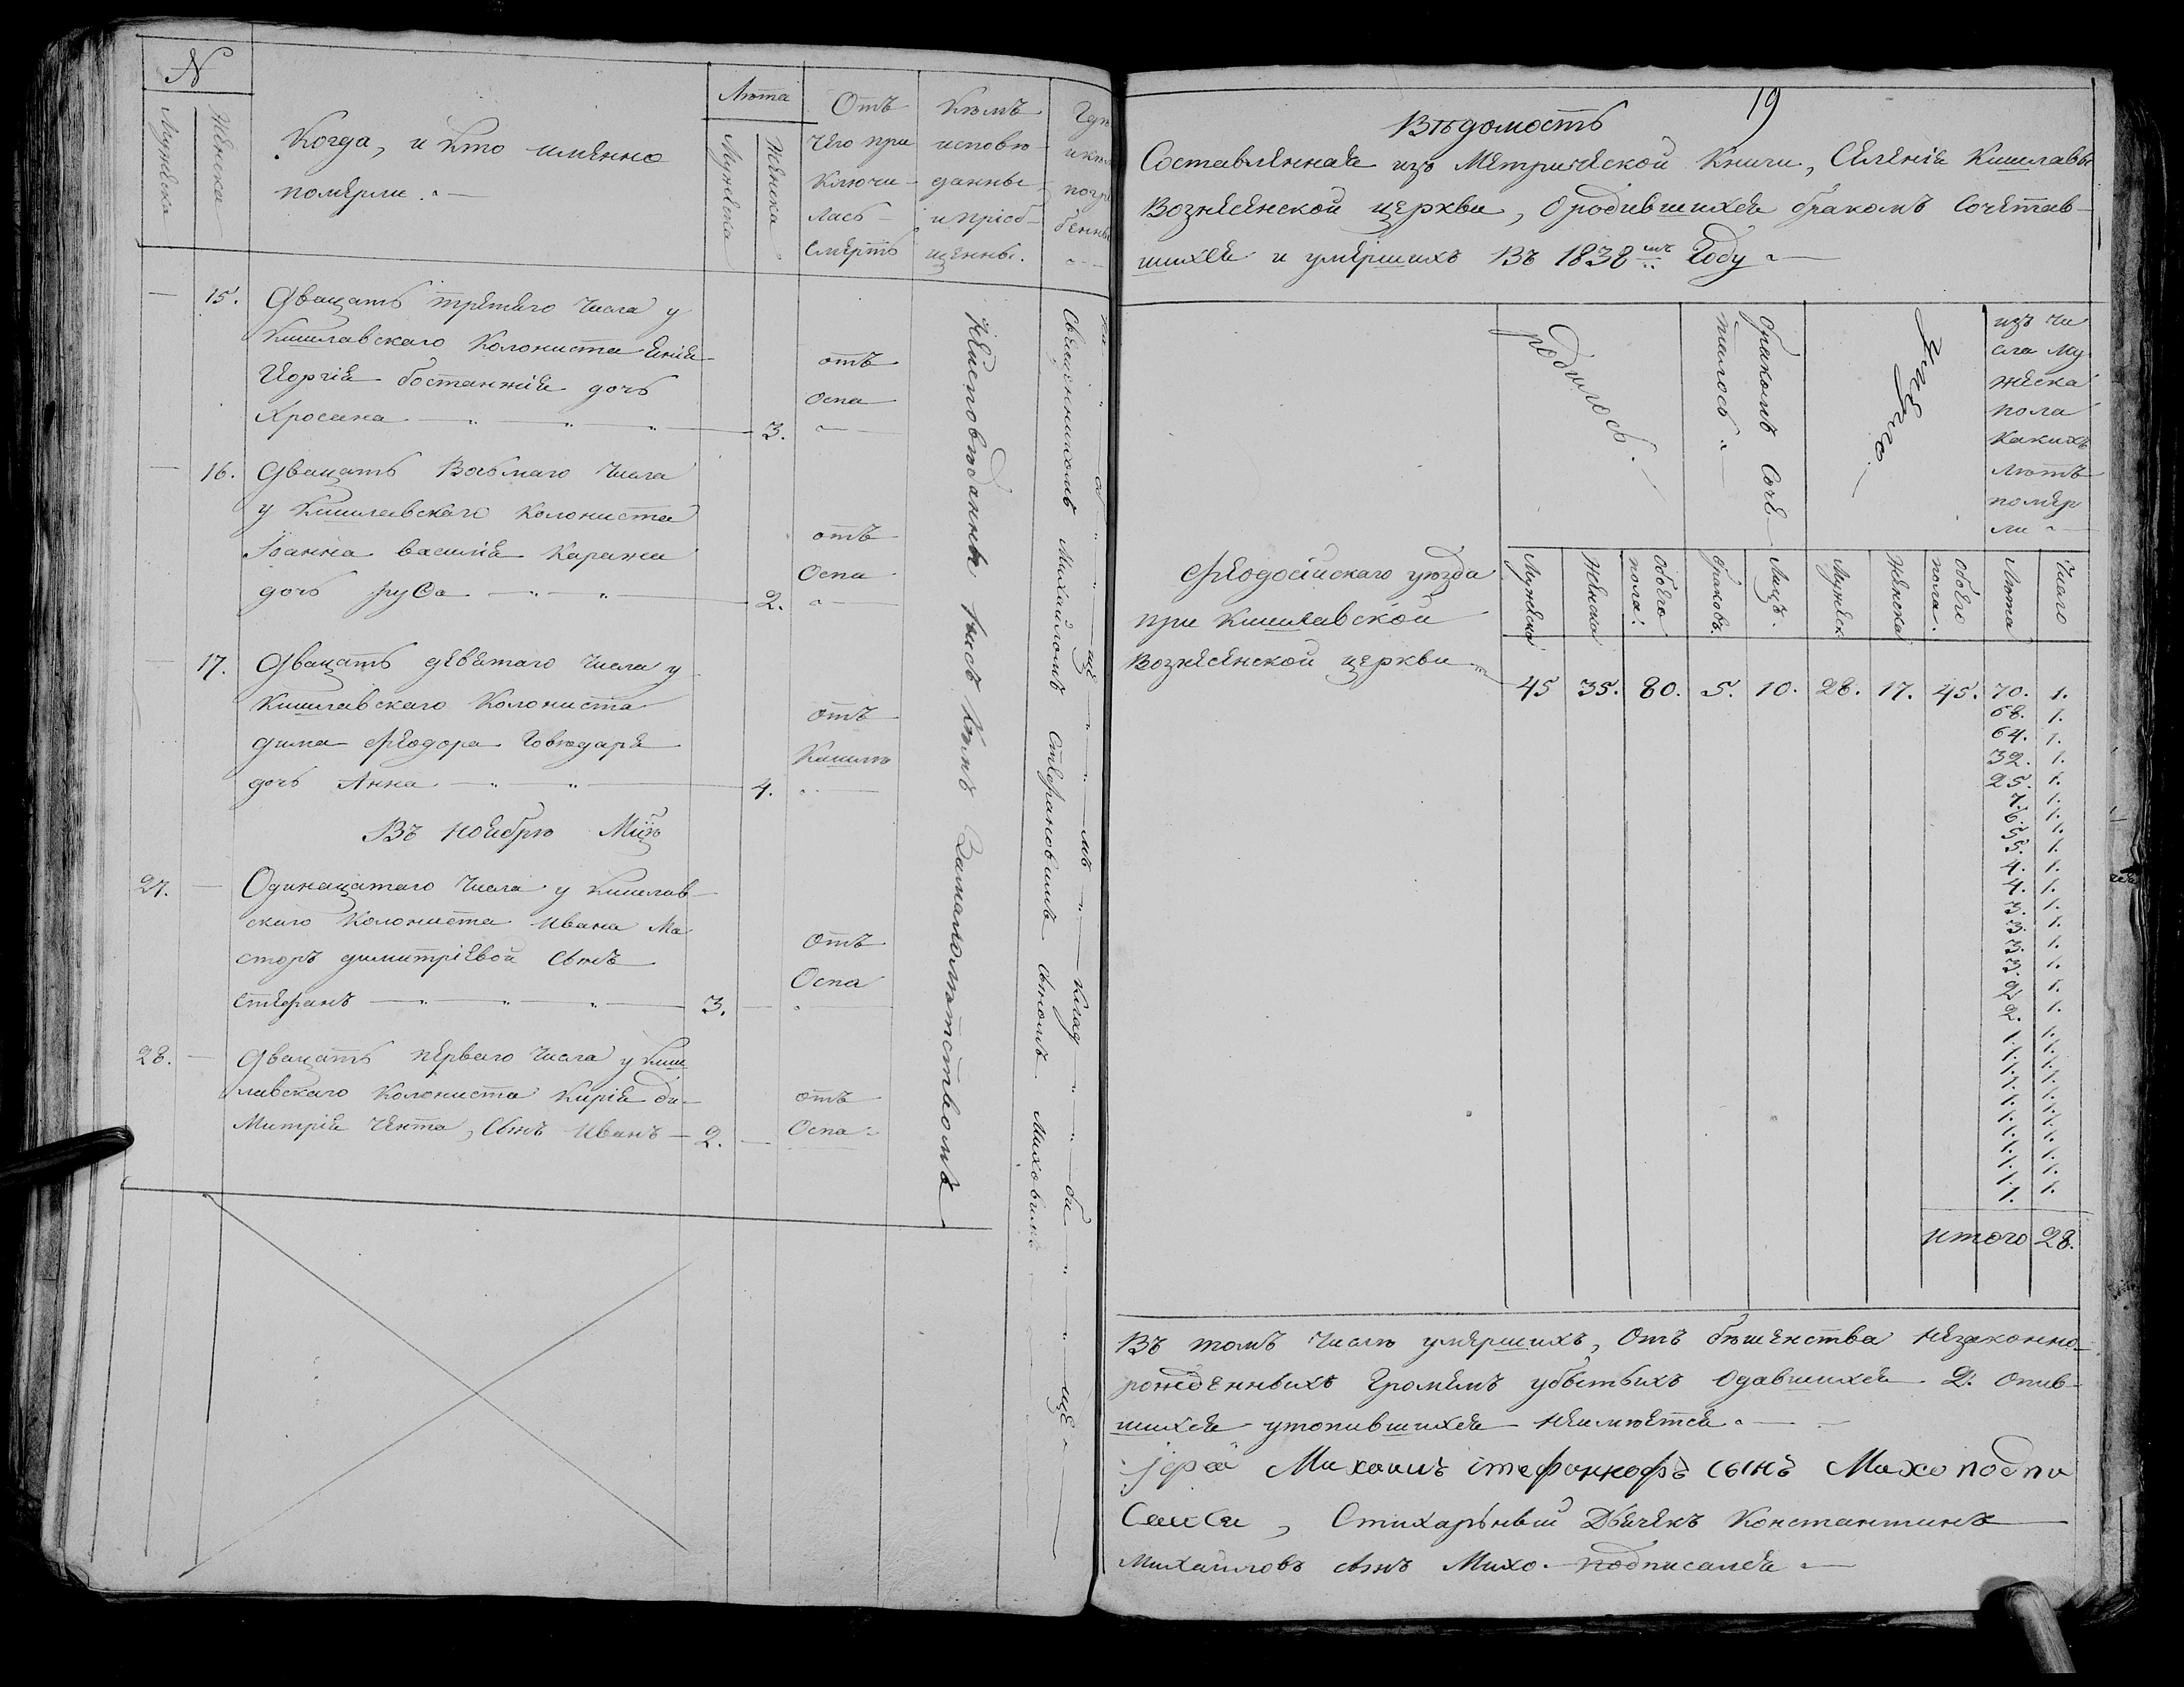 N
Мужеска
Женска
Когда, и кто именно
померли.
Люта
Мужеска
Женска
Отъ
чего при
ключи-
лась
смерть
Кѣмъ
исповѣ-
данны
и пріоб-
щенны.
Гдѣ
и кѣмъ
погре
бенны
15.
Двацать третьего числа у
Кишлавскаго Колониста
Иоргія бостанжія дочь
Хросана
3.
отъ
Оспа
16.
Двацать Восьмаго числа
у Кишлавскаго Колониста
Іоанна василія Каражи
дочь руса
2.
отъ
Оспа
17.
Двацать девятаго числа у
Кишлавскаго Колониста
дима Феодора Говюдаря
дочь Анна
4.
отъ
Кашлю
Въ ноябрѣ Мцѣ
27.
Одинацатаго числа у Кишлав-
скаго Колониста Ивана Ма
сторъ димитріевой сынъ
Стефанъ
3.
отъ
Оспа
28.
Двацать перваго числа у Киш
лавскаго Колониста Кирія ди-
митрія Чента, сынъ Иванъ
2.
отъ
Оспа
Неисповѣданны
кѣмъ Замалолѣтствомъ
Священникомъ Михаиломъ Стефановымъ сыномъ Миховымъ
клад би ще
19
Вѣдомость
Составленная изъ Метрической Книги, Селенія Кишлавы
Вознесенской церкви, о родившихся бракомъ сочетав-
шихся и умершихъ Въ 1838мъ Году
родилось.
бракомъ соче
талось
умерло.
изъ чи
сла му
жеска
пола
какихъ
лѣтъ
помер
ли
Мужеска
Женска
обоего
пола.
браковъ.
Лицъ.
Мужеск
Женска
обоего
пола.
Лѣта
Число
Феодосійскаго уѣзда
при Кишлавской
Вознесенской церкви
45 35. 80. 5. 10. 28. 17. 45. 70. 1.
68. 1.
64. 1.
32. 1.
25. 1.
7. 1.
6. 1.
5. 1.
5. 1.
4. 1.
4. 1.
3. 1.
3. 1.
3. 1.
3. 1.
2. 1.
2. 1.
1. 1.
1. 1.
1. 1.
1. 1.
1. 1.
1. 1.
1. 1.
1. 1.
1. 1.
1. 1.
1. 1.
итого 28.
Въ томъ числѣ умершихъ, отъ бѣшенства незаконно-
рожденныхъ громомъ убытыхъ одавшихся 2. опив-
шихся утопившихся неимѣется
Іерей Михаилъ Стефанофъ сынъ Михо подпи
салса, Стихарьный Дьячекъ Константинъ
Михаиловъ сынъ Михо. подписался